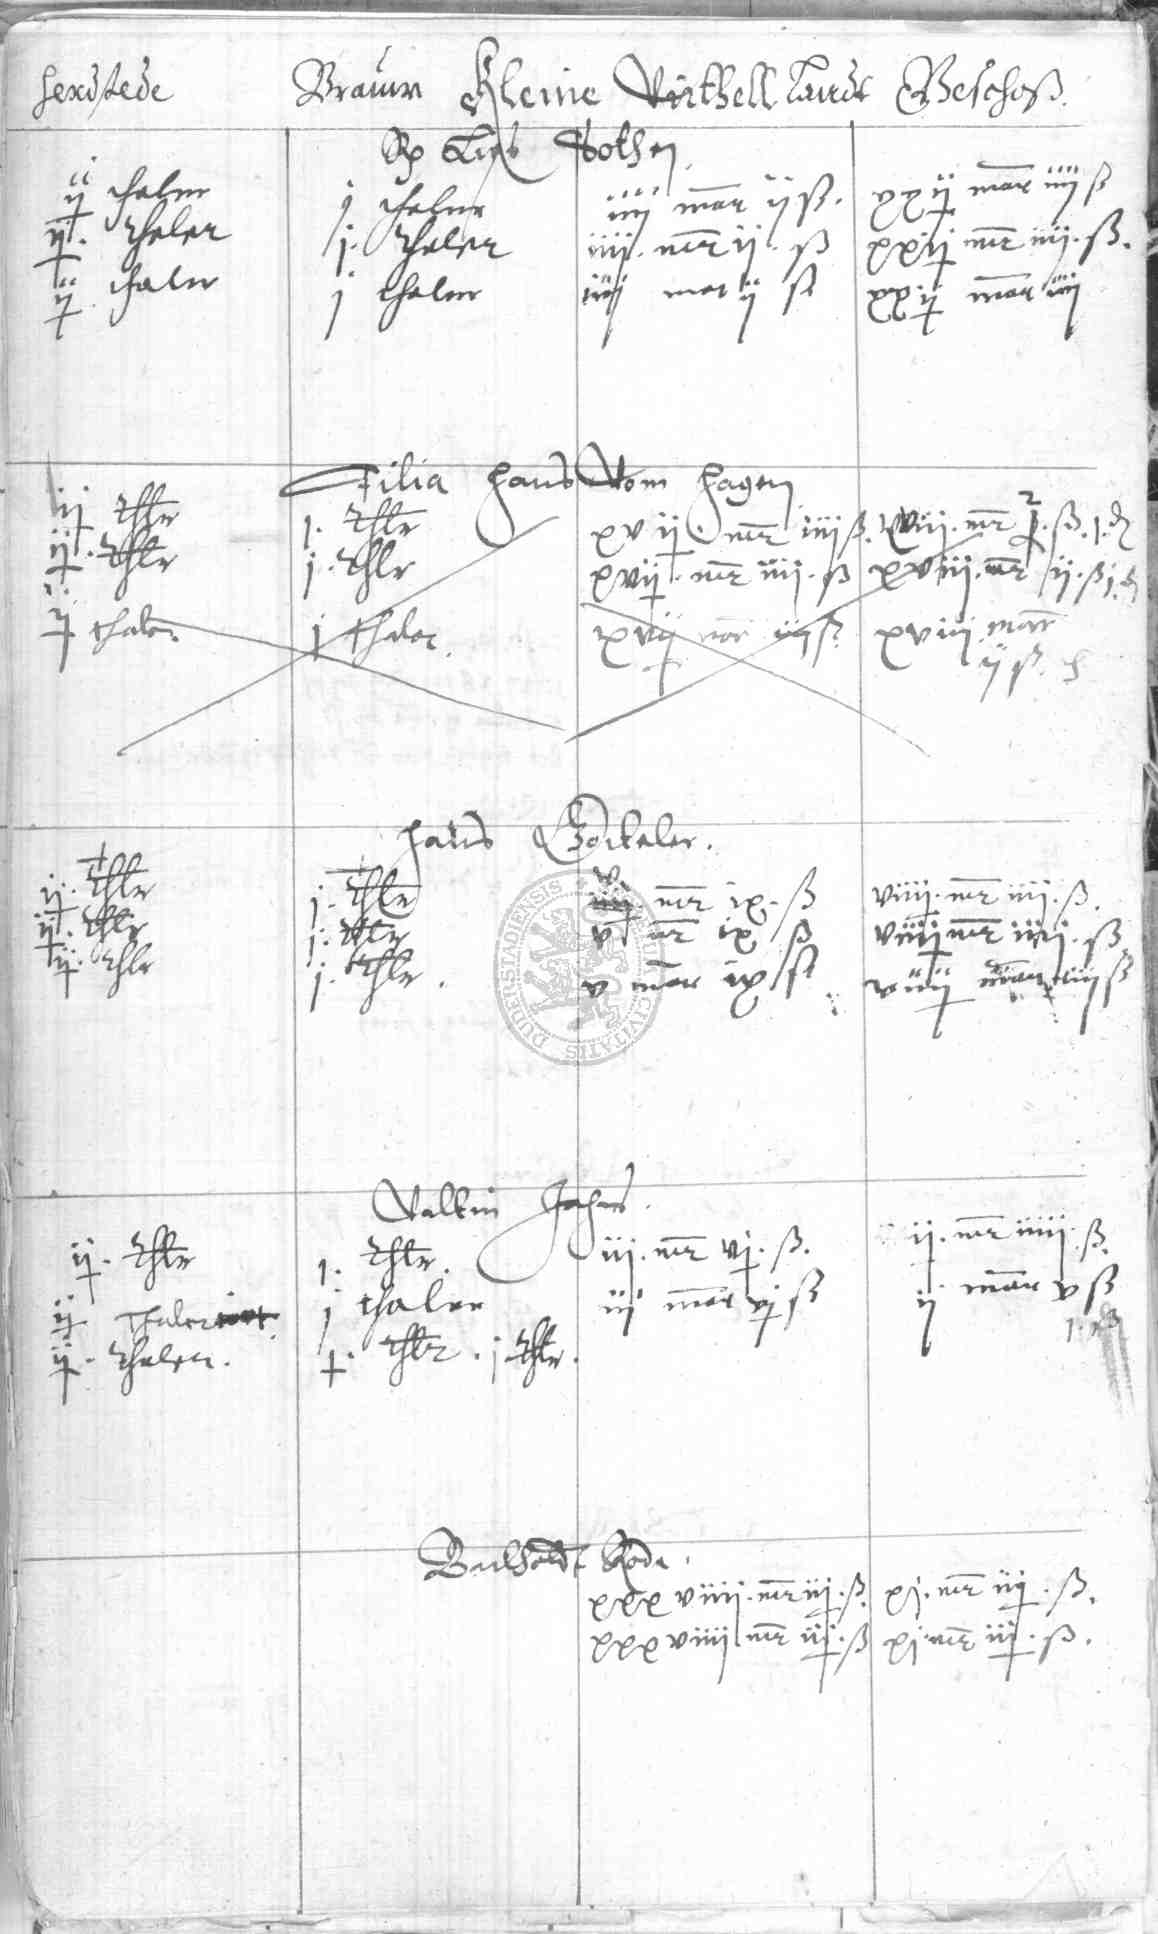 herdstede Brauw Kleine Virthell Landt Geschoß
Lips Bothen
ij thaler j thaler iiij mar ij ß. xxij mar iiij ß
ij. thaler j. thaler iiij. mr ij. ß xxij mr iiij. ß.
ij thaler j thaler iiij mar ij ß xxij mar iiij
Filia Hans Vom Hagen
ij thlr j. thlr xvij. mr iiij ß. xviij. mr ß. j. ₰
ij. thlr j. thlr xvij. mr iiij. ß xviij. mr ij. ß j. ₰
ij thaler. j thaler. xvij mar iiij ß. xviij mar
ij ß ₰
Hans
ij. thlr j. thlr v mr ix. ß viiij. mr iiij. ß.
ij. thlr j. thlr v mr ix ß viiij mr iiij. ß.
ij. thlr j. thlr. v mar ix ß viiij mar iiij ß
DUDERSTADIENSIS CIVITATIS
Valtin
ij. thlr j. thlr. iij. mr vj. ß. ij. mr iiij. ß.
ij thaler j thaler iij mar vj ß ij mar v ß
ij. thaler. j. thlr. j thlr.
Rode.
xxxviiij. mr iij. ß. xj. mr iij. ß.
xxxviiij mr iij. ß xj. mr iij. ß.